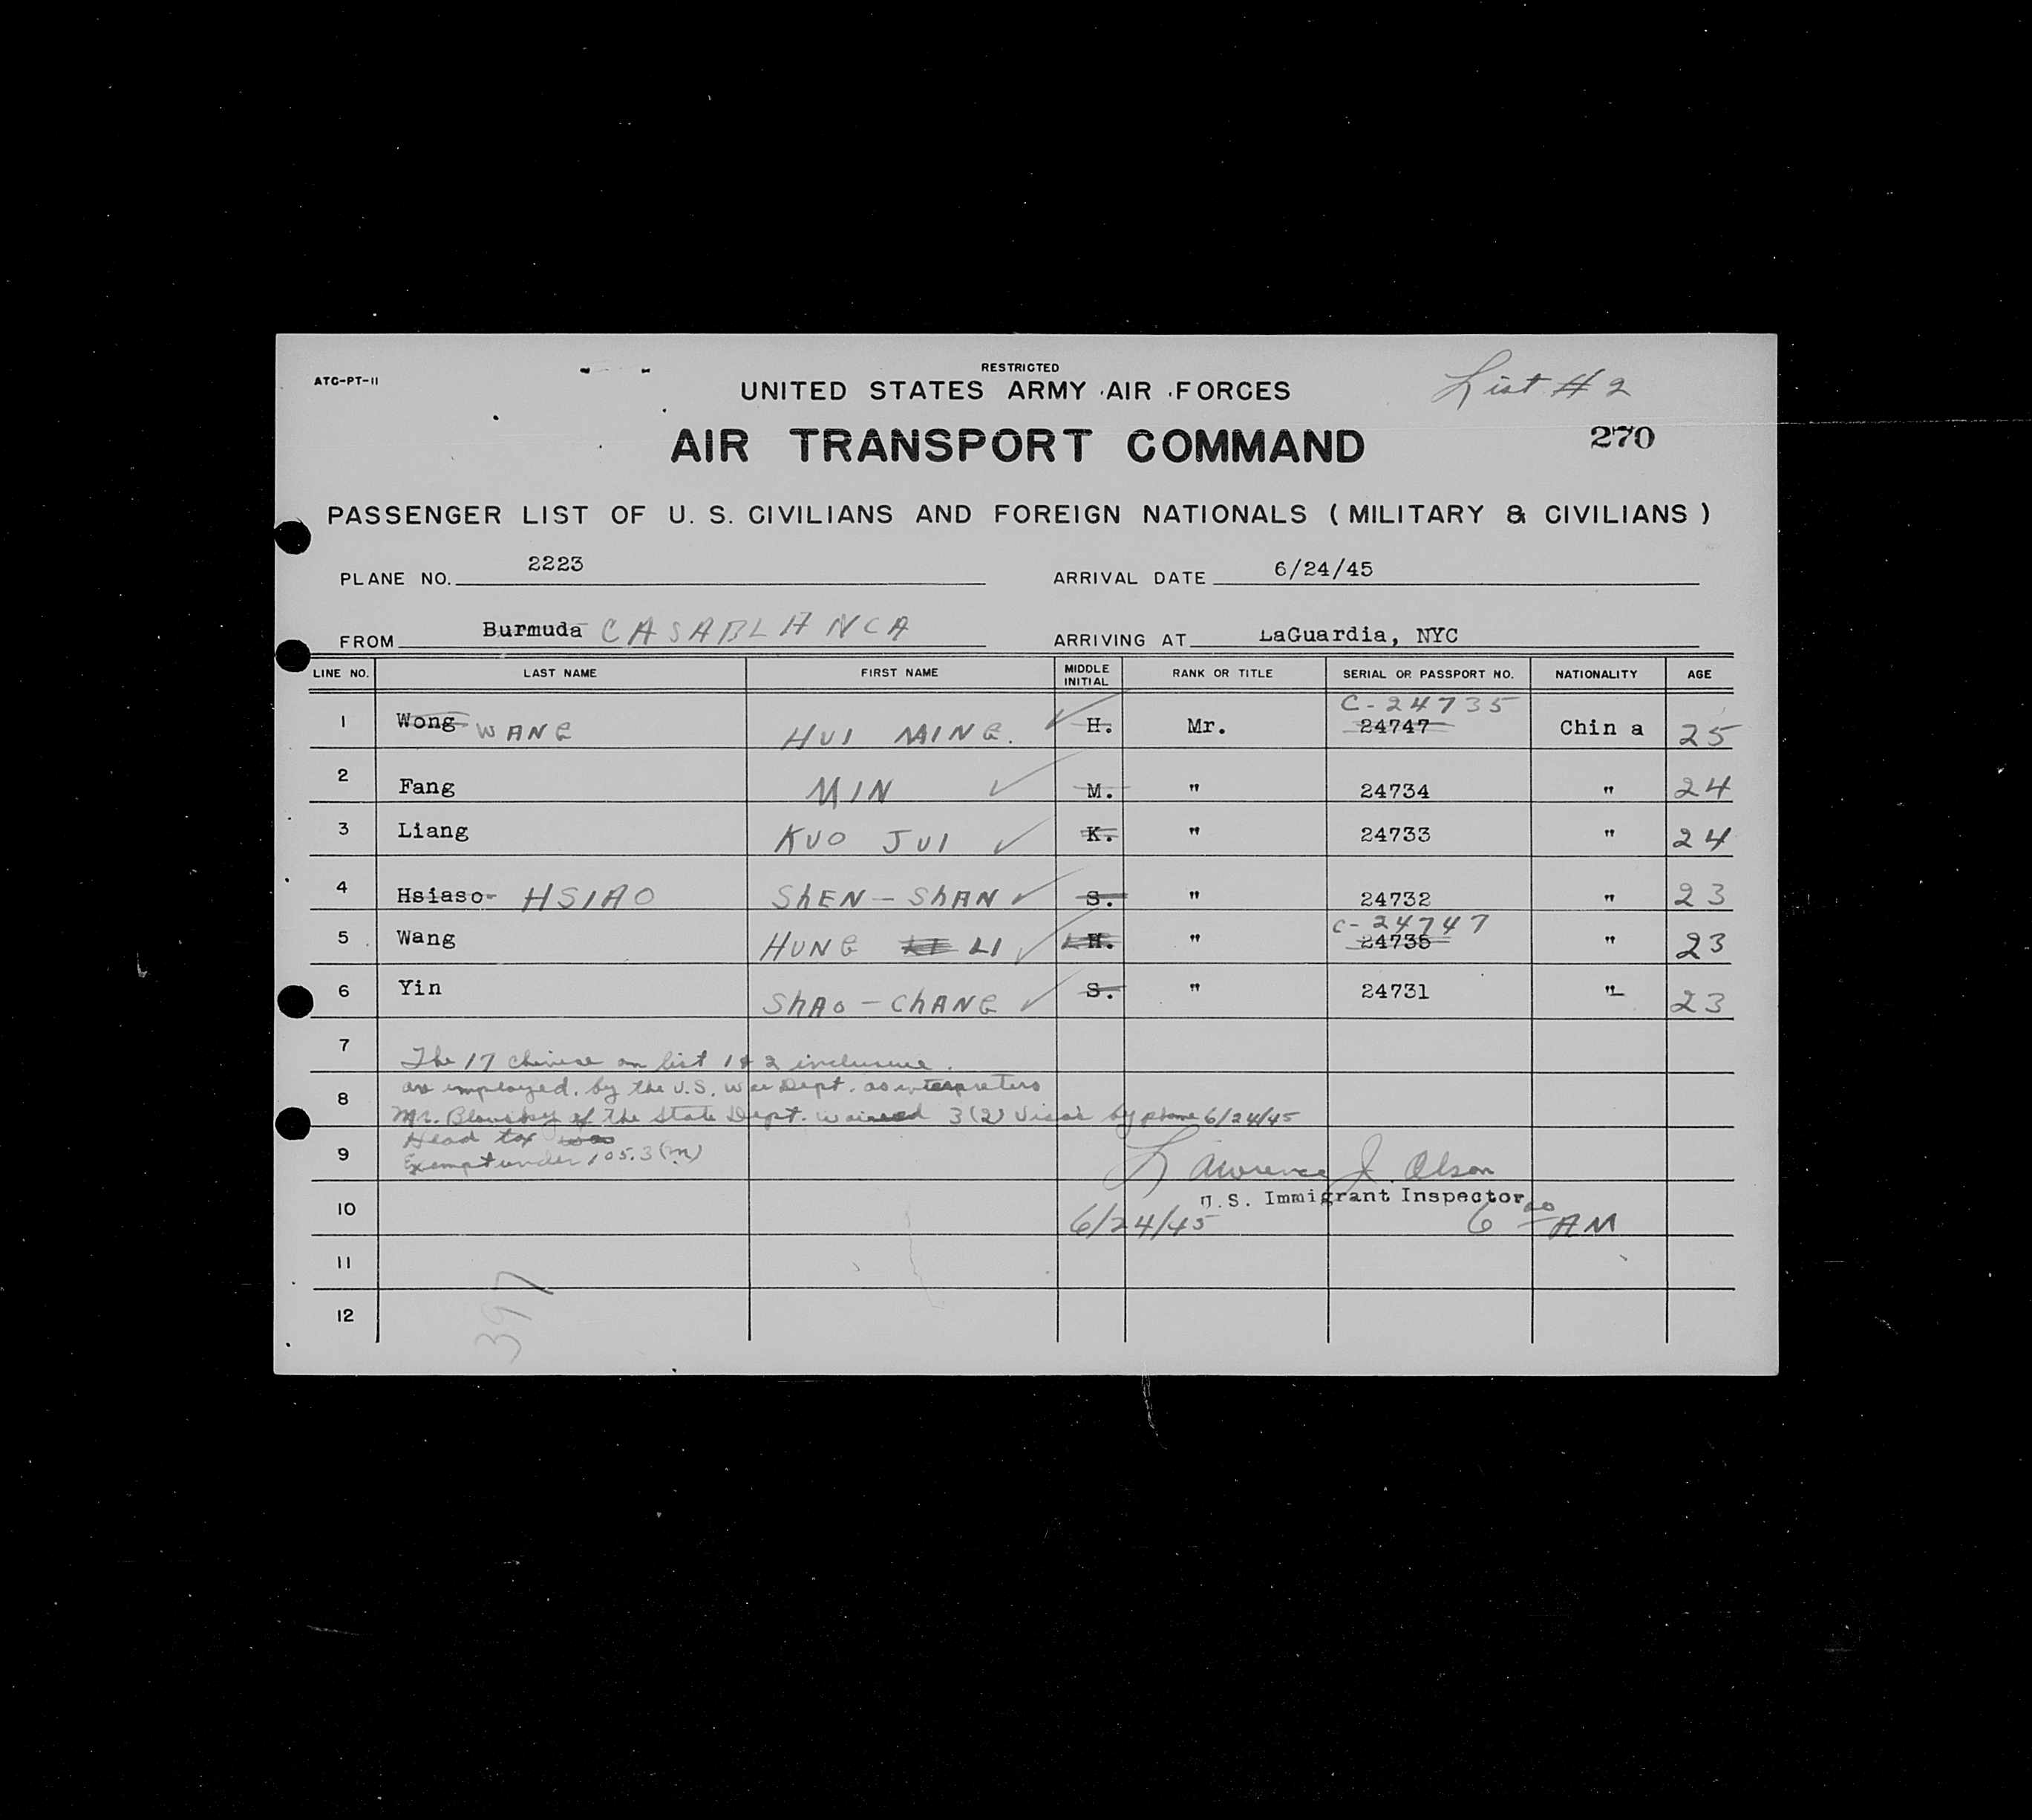 ATC-PT-11
RESTRICTED
UNITED STATES ARMY AIR FORCES
List # 2
AIR TRANSPORT COMMAND
270
PASSENGER LIST OF U. S. CIVILIANS AND FOREIGN NATIONALS ( MILITARY & CIVILIANS )
PLANE NO. 2223 ARRIVAL DATE 6/24/45
FROM Burmuda CASABLANCA ARRIVING AT LaGuardia, NYC
LINE NO. LAST NAME FIRST NAME MIDDLE INITIAL RANK OR TITLE SERIAL OR PASSPORT NO. NATIONALITY AGE
C-24735
1 Wong WANG HUI MING. H. Mr. 24747 Chin a 25
2 Fang MIN M. " 24734 " 24
3 Liang KUO JUI K. " 24733 " 24
4 Hsiaso HSIAO ShEN-ShAN S. " 24732 " 23
C-24747
5 Wang HUNG LI H. " 24735 " 23
6 Yin ShAO-ChANG S. " 24731 " 23
7 The 17 Chinese on list 1 & 2 inclusive.
8 are employed by the U.S. War Dept. as interpreters
Mr. of the State Dept. waived 3(2) Visas by phone 6/24/45
Head tax
9 Exempt under 105.3(m)
Lawrence J. Olson
U.S. Immigrant Inspector
10 6/24/45 6 00 AM
11
12
397